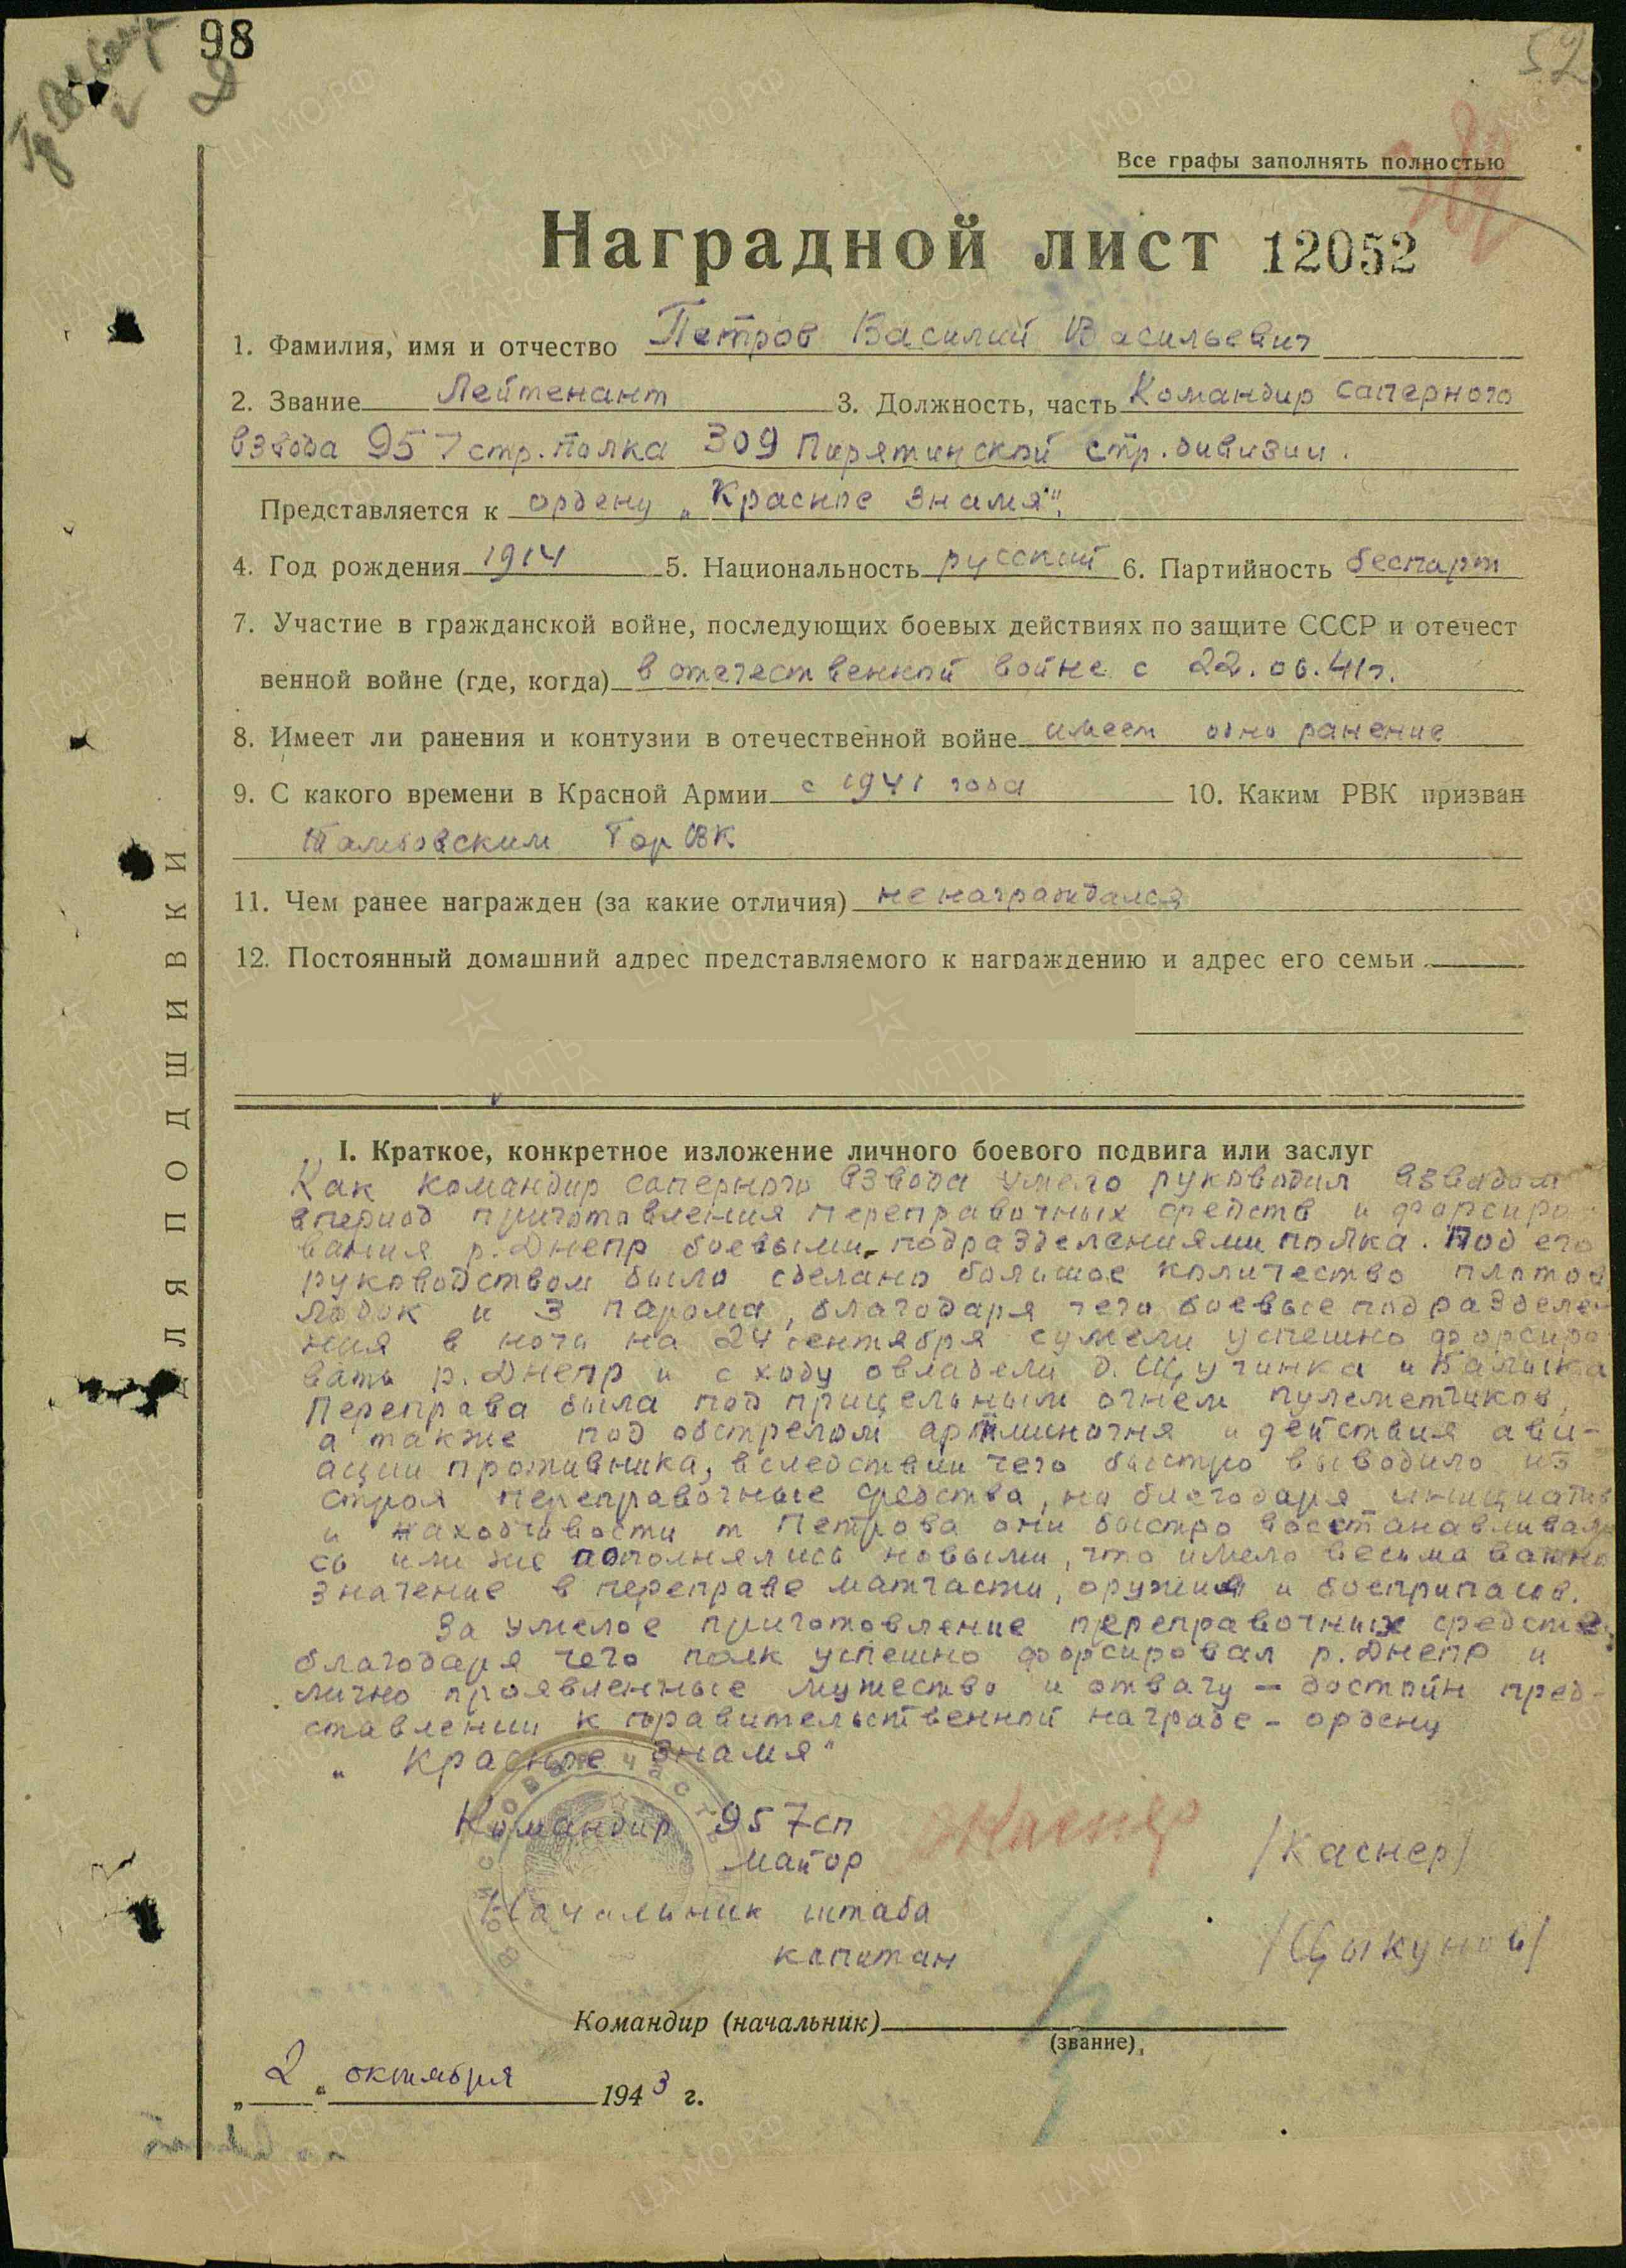 98
52
Все графы заполнять полностью
Наградной лист 12052
1. Фамилия, имя и отчество Петров Василий Васильевич
2. Звание Лейтенант 3. Должность, часть Командир саперного
взвода 957 стр. полка 309 Пирятинской стр. дивизии.
Представляется к ордену „Красное Знамя".
4. Год рождения 1914 5. Национальность русский 6. Партийность беспарт
7. Участие в гражданской войне, последующих боевых действиях по защите СССР и отечест
венной войне (где, когда) в отечественной войне с 22.06.41г.
8. Имеет ли ранения и контузии в отечественной войне имеет одно ранение
9. С какого времени в Красной Армии с 1941 года 10. Каким РВК призван
Тамбовским ГорВК
11. Чем ранее награжден (за какие отличия) не награждался
12. Постоянный домашний адрес представляемого к награждению и адрес его семьи
ДЛЯ ПОДШИВКИ
I. Краткое, конкретное изложение личного боевого подвига или заслуг
Как командир саперного взвода умело руководил взводом
в период приготовления переправочных средств и форсиро-
вания р. Днепр боевыми подразделениями полка. Под его
руководством было сделано большое количество плотов
лодок и 3 парома, благодаря чего боевые подразделе-
ния в ночь на 24 сентября сумели успешно форсиро
вать р. Днепр и с ходу овладели д. Щучинка и Балыка
Переправа была под прицельным огнем пулеметчиков,
а также под обстрелом артминогня и действия ави-
ации противника, вследствии чего быстро выводило из
строя переправочные средства, но благодаря инициатив
и находчивости т Петрова они быстро восстанавливали
сь или же пополнялись новыми, что имело весьма важно
значение в переправе матчасти, оружия и боеприпасов.
За умелое приготовление переправочных средств,
благодаря чего полк успешно форсировал р. Днепр и
лично проявленные мужество и отвагу – достоин пред-
ставлении к правительственной награде – ордену
„Красное Знамя"
Командир 957сп
майор Каснер /Каснер/
Начальник штаба
капитан /Цыкунов/
Командир (начальник)
(звание)
„2" октября 1943 г.